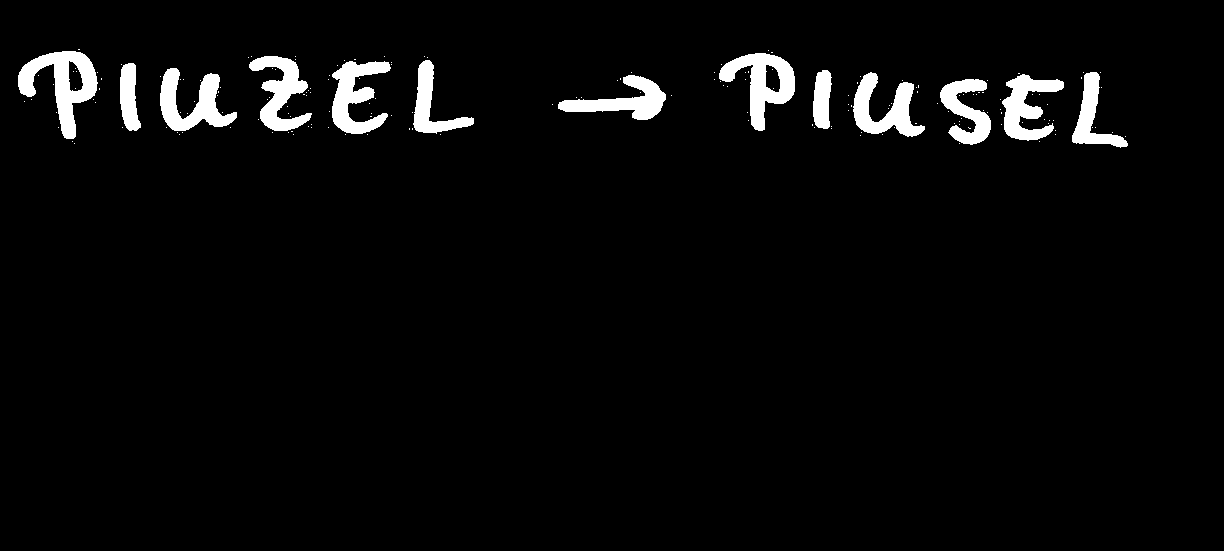 PIUZEL → PIUSEL